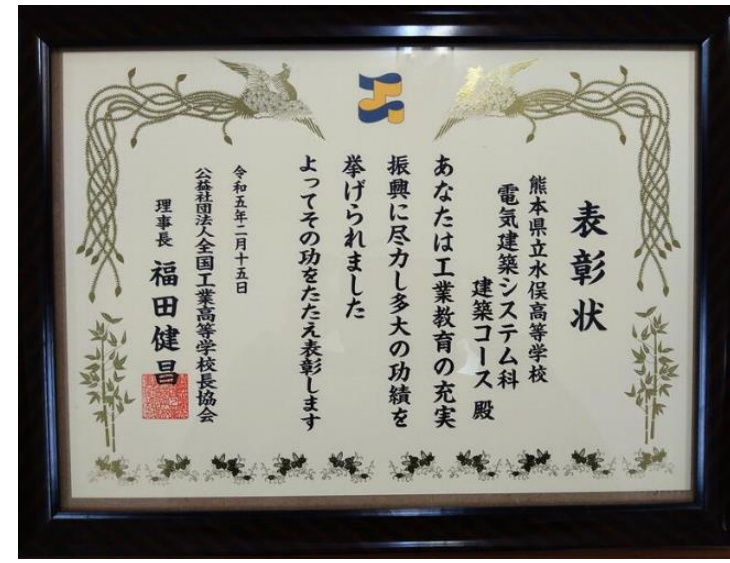 表彰状
熊本県立水俣高等学校
電気建築システム科
建築コース 殿
あなたは工業教育の充実
振興に尽力し多大の功績を
挙げられました
よってその功をたたえ表彰します
令和五年二月十五日
公益社団法人全国工業高等学校長協会
理事長 福田健昌